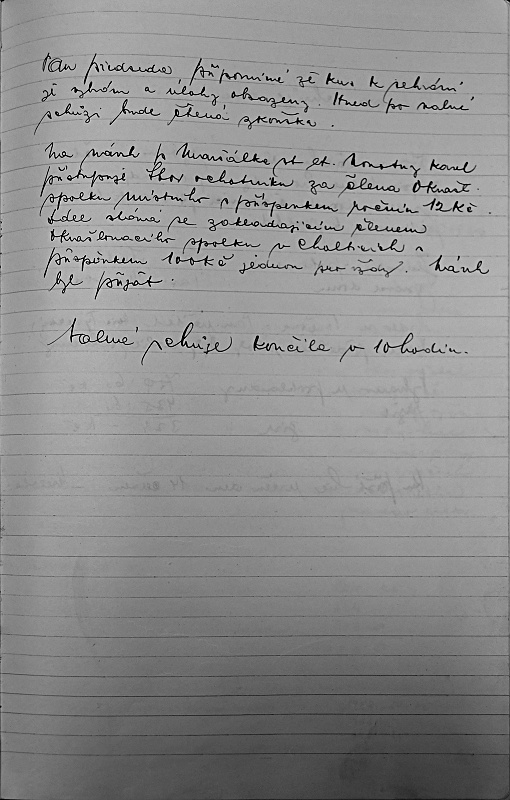 Pan předseda, připomíná že kus k sehrání
je vybrán a úlohy obsazeny. Ihned po valné
schůzi bude čtená zkouška.
Na návrh p. Maršálka st. et. Novotný Karel
přistupuje Sbor ochotníků za člena Okrašl.
spolku místního s příspěvkem ročním 12 Kč.
stává se zakládajícím členem
Okrašlovacího spolku v Cholticích s
příspěvkem 100 Kč jednou pro vždy. Návrh
byl přijat.
Valná schůze končila v 10 hodin.